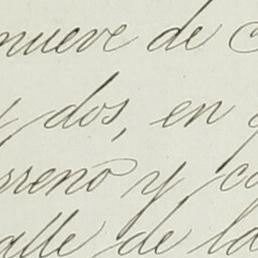 nueve de
y dos, en
rreno y ca
alle de la